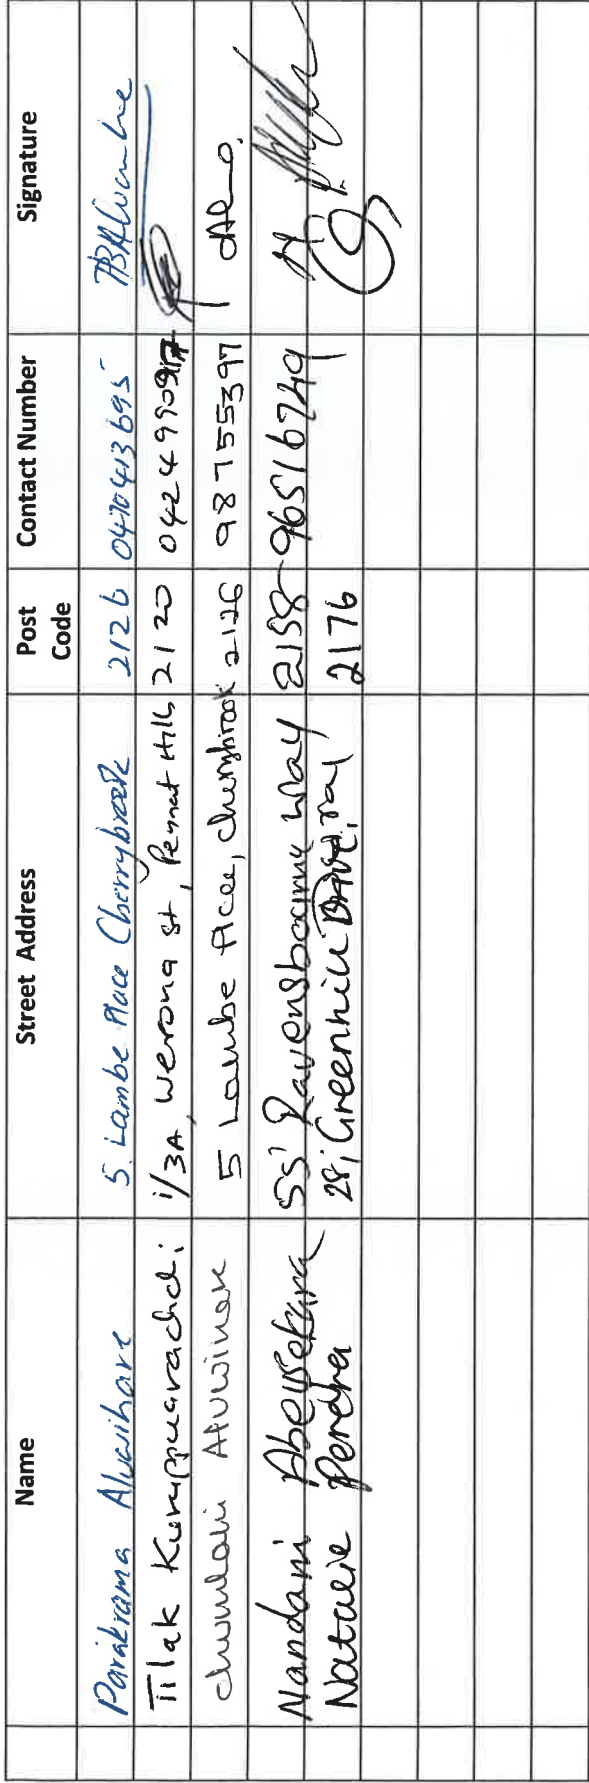 Name Street Address Post Code Contact Number Signature
Parakrama Aluwihare 5 Lambe Place Cherrybrook 2126 0470413695
Tilak Kuruppuarachchi 1/3A, Werona st, Pennat Hills 2120
5 Lambe Place, Cherrybrook 2126 98755397
Nandani Abeysekara 55 Ravensbourne Way 2158 96516749
Natalie Perera 28, Greenhill 2176